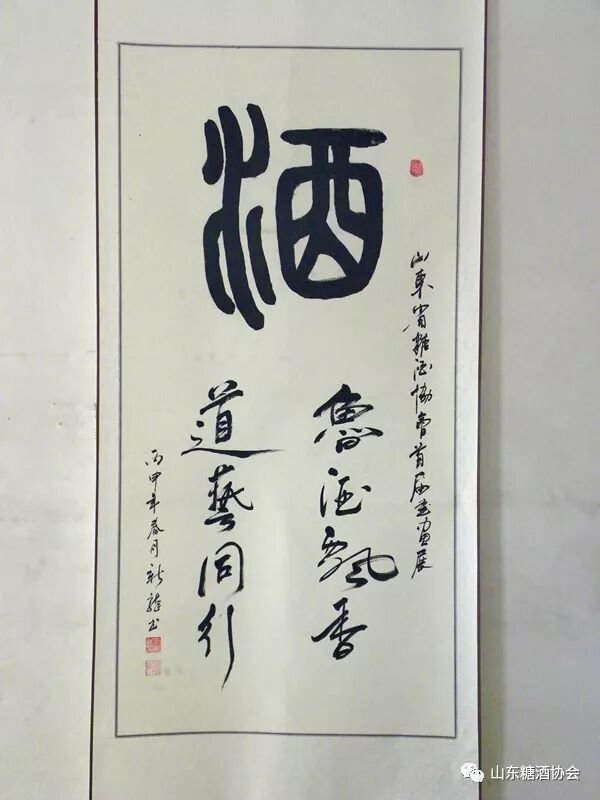 山東省糖酒協會首届書畫展
酒
魯酒飄香
道藝同行
丙申年春月新龍书
山东糖酒协会